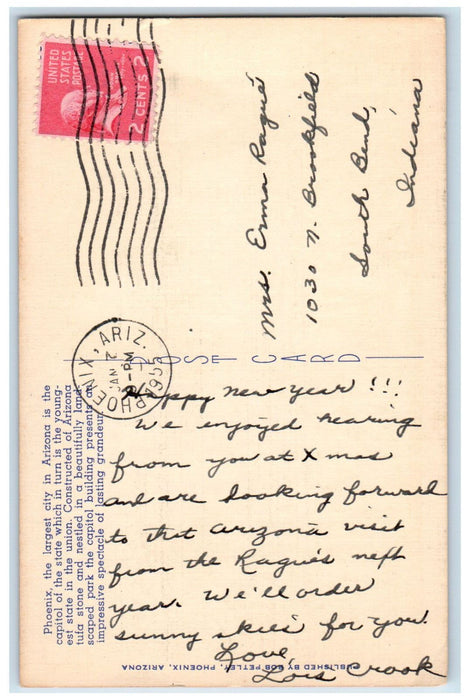 UNITED
STATES
POSTAGE
2 CENTS 2
PHOENIX, ARIZ.
JAN 2
PM
1955
POST CARD
Mrs. Erma Ragué
1030 N. Brookfield
South Bend,
Indiana
Happy New Year!!!
We enjoyed hearing
from you at Xmas
and are looking forward
to that Arizona visit
from the Ragués next
year. We'll order
sunny skies for you.
Love,
Lois Crook
Phoenix, the largest city in Arizona is the
capitol of the state which in turn is the young-
est state in the union. Constructed of Arizona
tufa stone and nestled in a beautifully land-
scaped park the capitol building presents an
impressive spectacle of lasting grandeur.
PUBLISHED BY BOB PETLEY, PHOENIX, ARIZONA